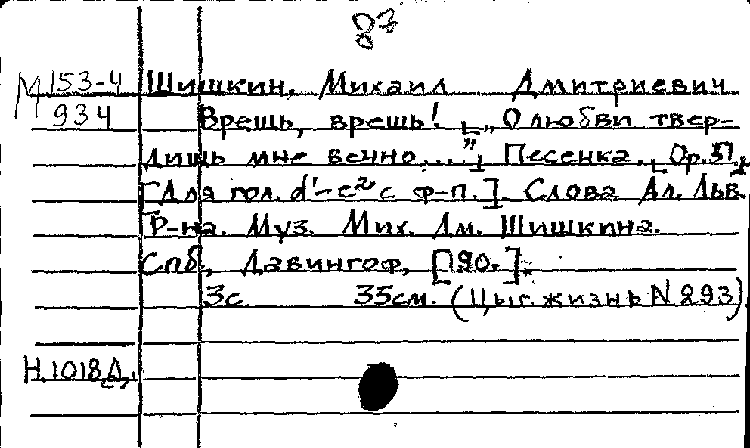 87
М 153-4 Шишкин, Михаил Дмитриевич
934 Врешь, врешь! [„О любви твер-
дишь мне вечно....”] Песенка. [Ор. 51.]
[Для гол. d'-e² с ф-п.]. Слова Ал. Льв.
Р-на. Муз. Мих. Дм. Шишкина.
Спб, Давингоф, [190.].
3с. 35см. (Цыг. жизнь N 293)
Н.1018Д.